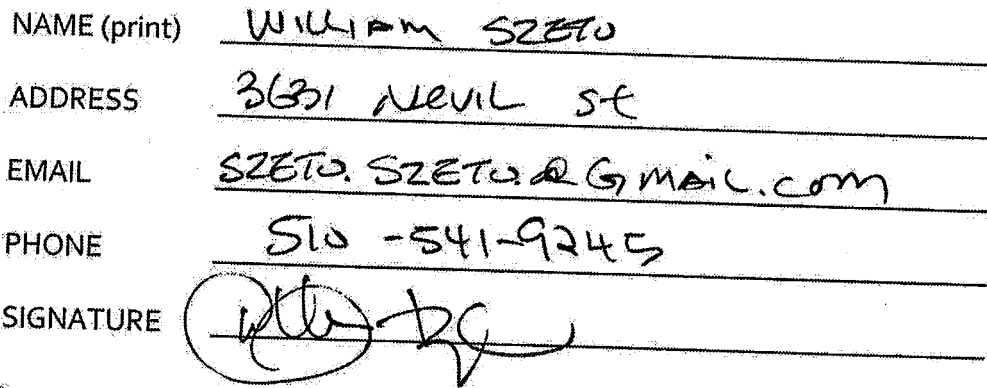 NAME (print) WILLIAM SZETO
ADDRESS 3631 NEVIL St
EMAIL SZETO.SZETO.@GMAIL.COM
PHONE 510-541-9245
SIGNATURE